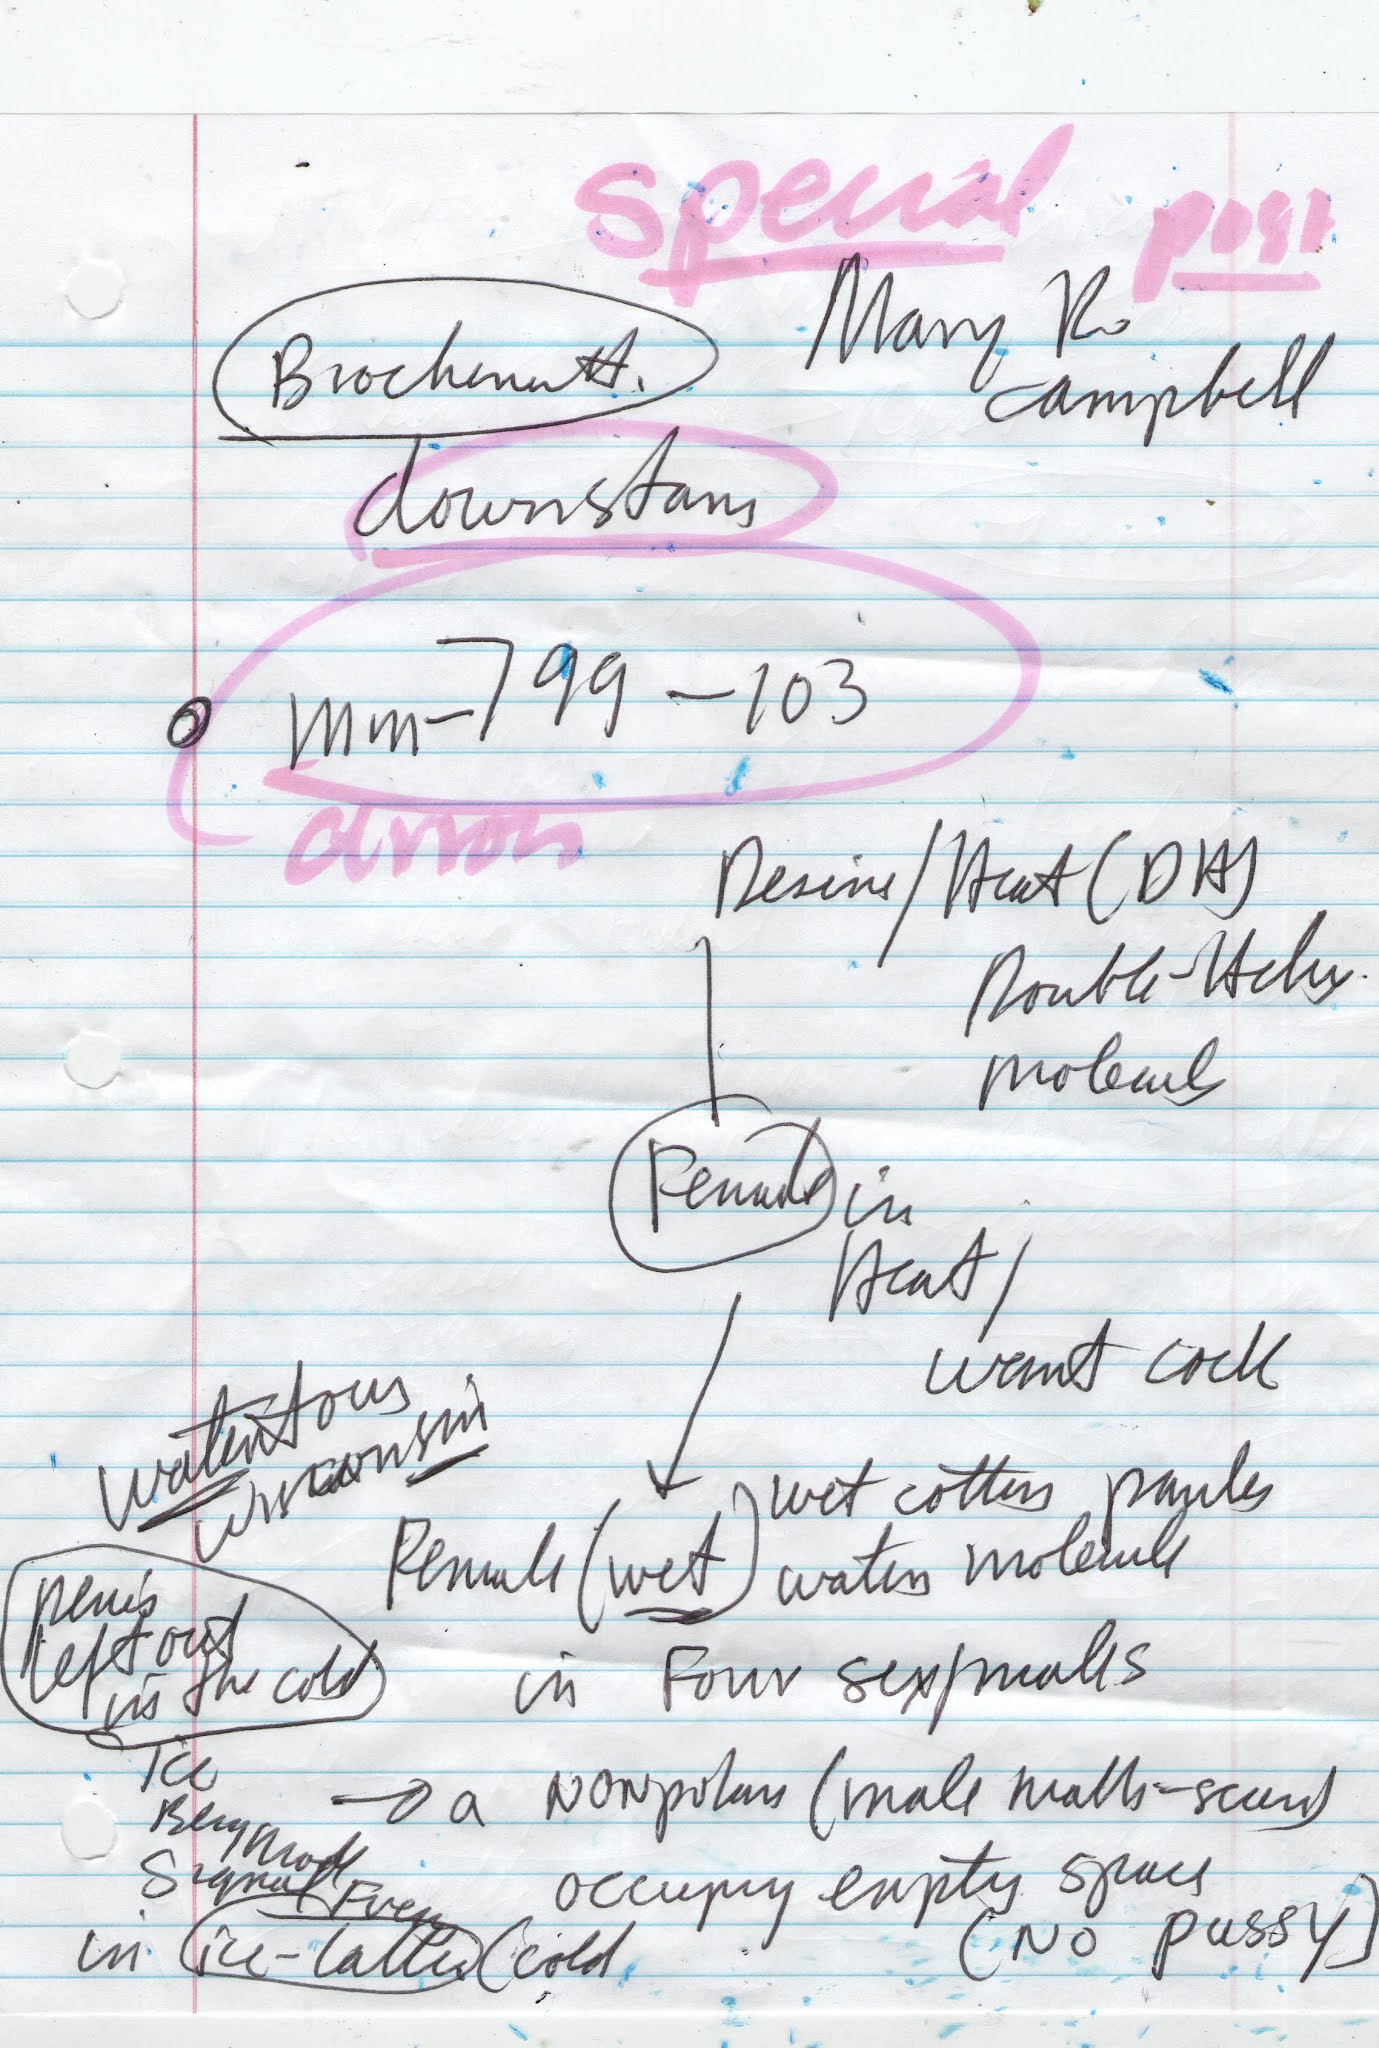 special post
Mary K.
Campbell
downstairs
mm-799-103
Desire/Heat (DH)
Double-Helix
molecule
Female in
Heat/
want cock
Wisconsin
Female (wet) wet cotton panties
water molecule
in Four sex/males
penis
left out
in the cold
Ice
Berg
Signal Even
→ a NONpolar (male
occupy empty space
in ice-lattice (cold
(NO pussy)